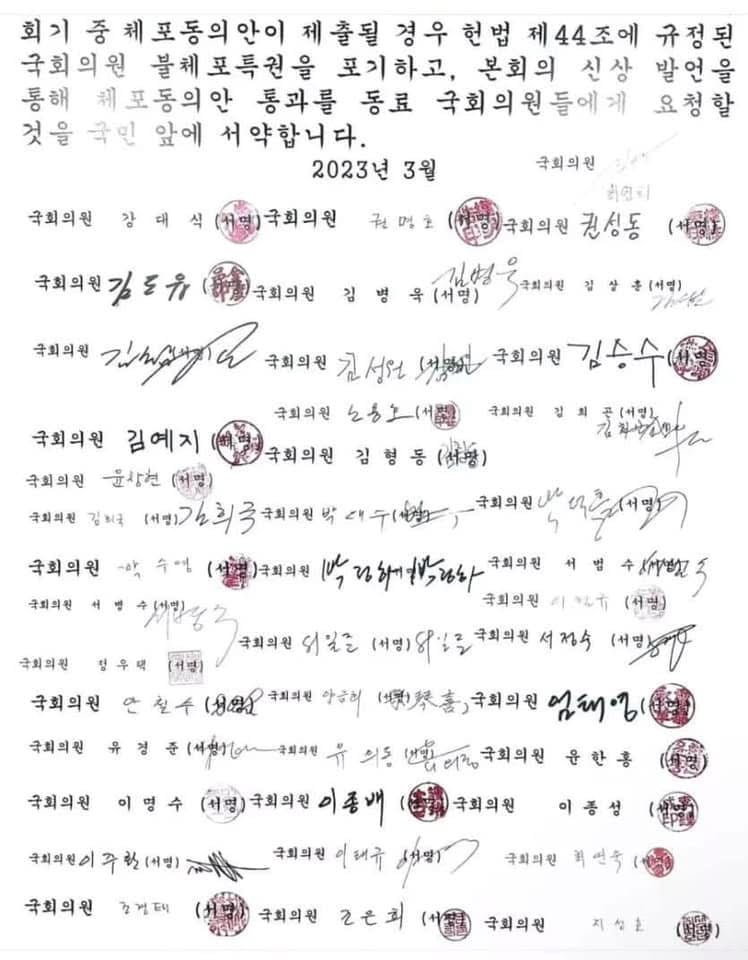 회기 중 체포동의안이 제출될 경우 헌법 제44조에 규정된
국회의원 불체포특권을 포기하고, 본회의 신상 발언을
통해 체포동의안 통과를 동료 국회의원들에게 요청할
것을 국민 앞에 서약합니다.
2023년 3월
국회의원
국회의원 강대식 (서명) 국회의원 권명호 (서명) 국회의원 권성동 (서명)
국회의원 김도읍 (서명) 국회의원 김병욱 (서명) 김병욱 국회의원 김상훈 (서명)
국회의원 국회의원 김성원 (서명) 국회의원 김승수 (서명)
국회의원 노용호 (서명) 국회의원 김희곤 (서명)
국회의원 김예지 (서명) 국회의원 김형동 (서명)
국회의원 윤상현 (서명)
국회의원 김희국 (서명) 김희국 국회의원 박대수 (서명) 국회의원 박덕흠 (서명)
국회의원 박수영 (서명) 국회의원 국회의원 서범수 (서명)
국회의원 서병수 (서명) 국회의원 (서명)
국회의원 (서명) 국회의원 서정숙 (서명)
국회의원 정우택 (서명)
국회의원 안철수 (서명) 국회의원 양금희 (서명) 국회의원 엄태영 (서명)
국회의원 유경준 (서명) 국회의원 유의동 (서명) 국회의원 윤한홍 (서명)
국회의원 이명수 (서명) 국회의원 이종배 (서명) 국회의원 이종성 (서명)
국회의원 이주환 (서명) 국회의원 이태규 (서명) 국회의원 최연숙 (서명)
국회의원 조경태 (서명) 국회의원 조은희 (서명) 국회의원 지성호 (서명)